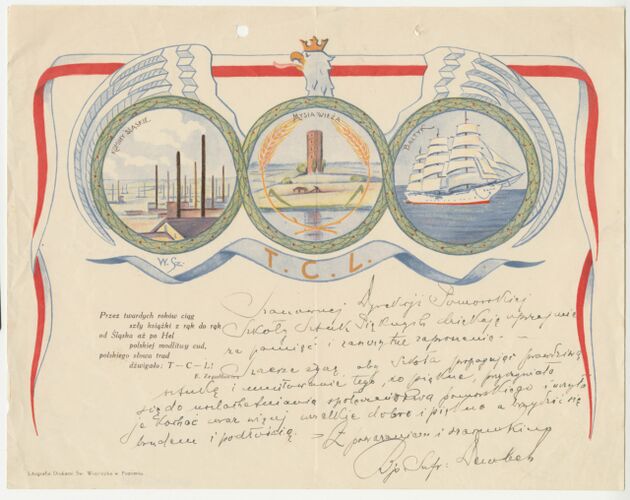 KOMINY ŚLĄSKIE
MYSIA WIEŻA
BAŁTYK
W. Sz.
T. C. L.
Przez twardych roków ciąg
szły książki z rąk do rąk
od Śląska aż po Hel
polskiej modlitwy cud,
polskiego słowa trud
dźwigało: T—C—L!
E. Zegadłowicz
Szanownej Dyrekcji Pomorskiej
Szkoły Sztuk Pięknych dziękuję uprzejmie
za pamięć i zaszczytne zaproszenie. —
Szczerze życzę, aby Szkoła propagując prawdziwą
sztukę i umiłowanie tego, co piękne, przyczyniała
się do uszlachetnienia społeczeństwa pomorskiego i uczyła
je kochać coraz więcej wszelkie dobro i piękno a brzydzić się
brudem i podłością. — Z poważaniem i szacunkiem
Bp Sufr.
Litografia Drukarni Św. Wojciecha w Poznaniu